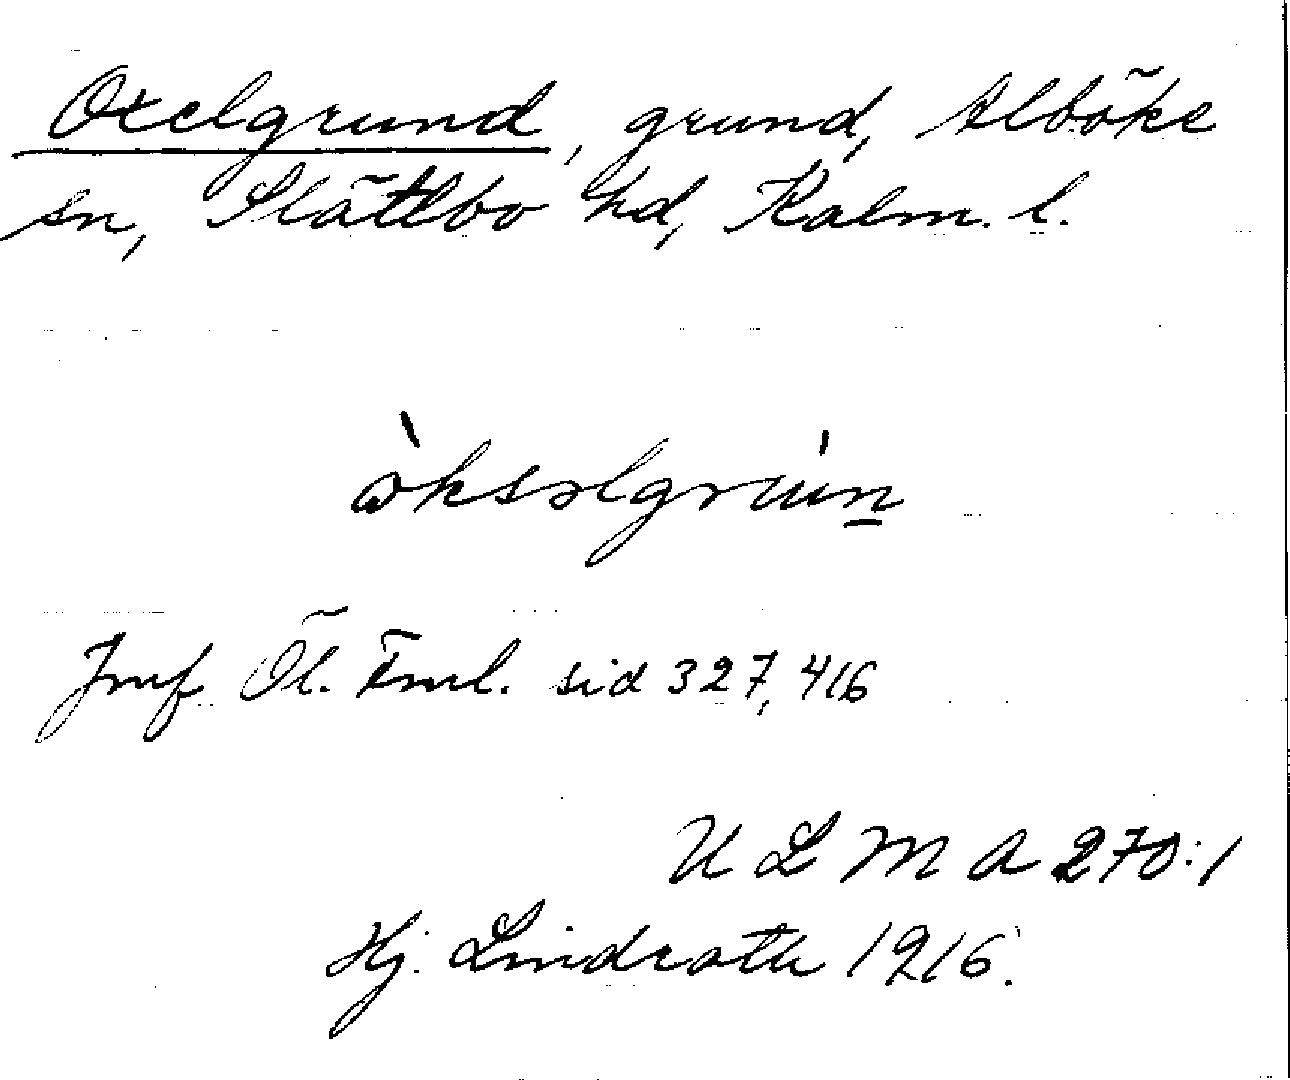 Oxelgrund, grund, Alböke
sn, Slättbo hd, Kalm. l.
òksəlgrùn
Jmf Öl. Fml. sid 327, 416
U L M A 270:1
Hj. Lindroth 1916.